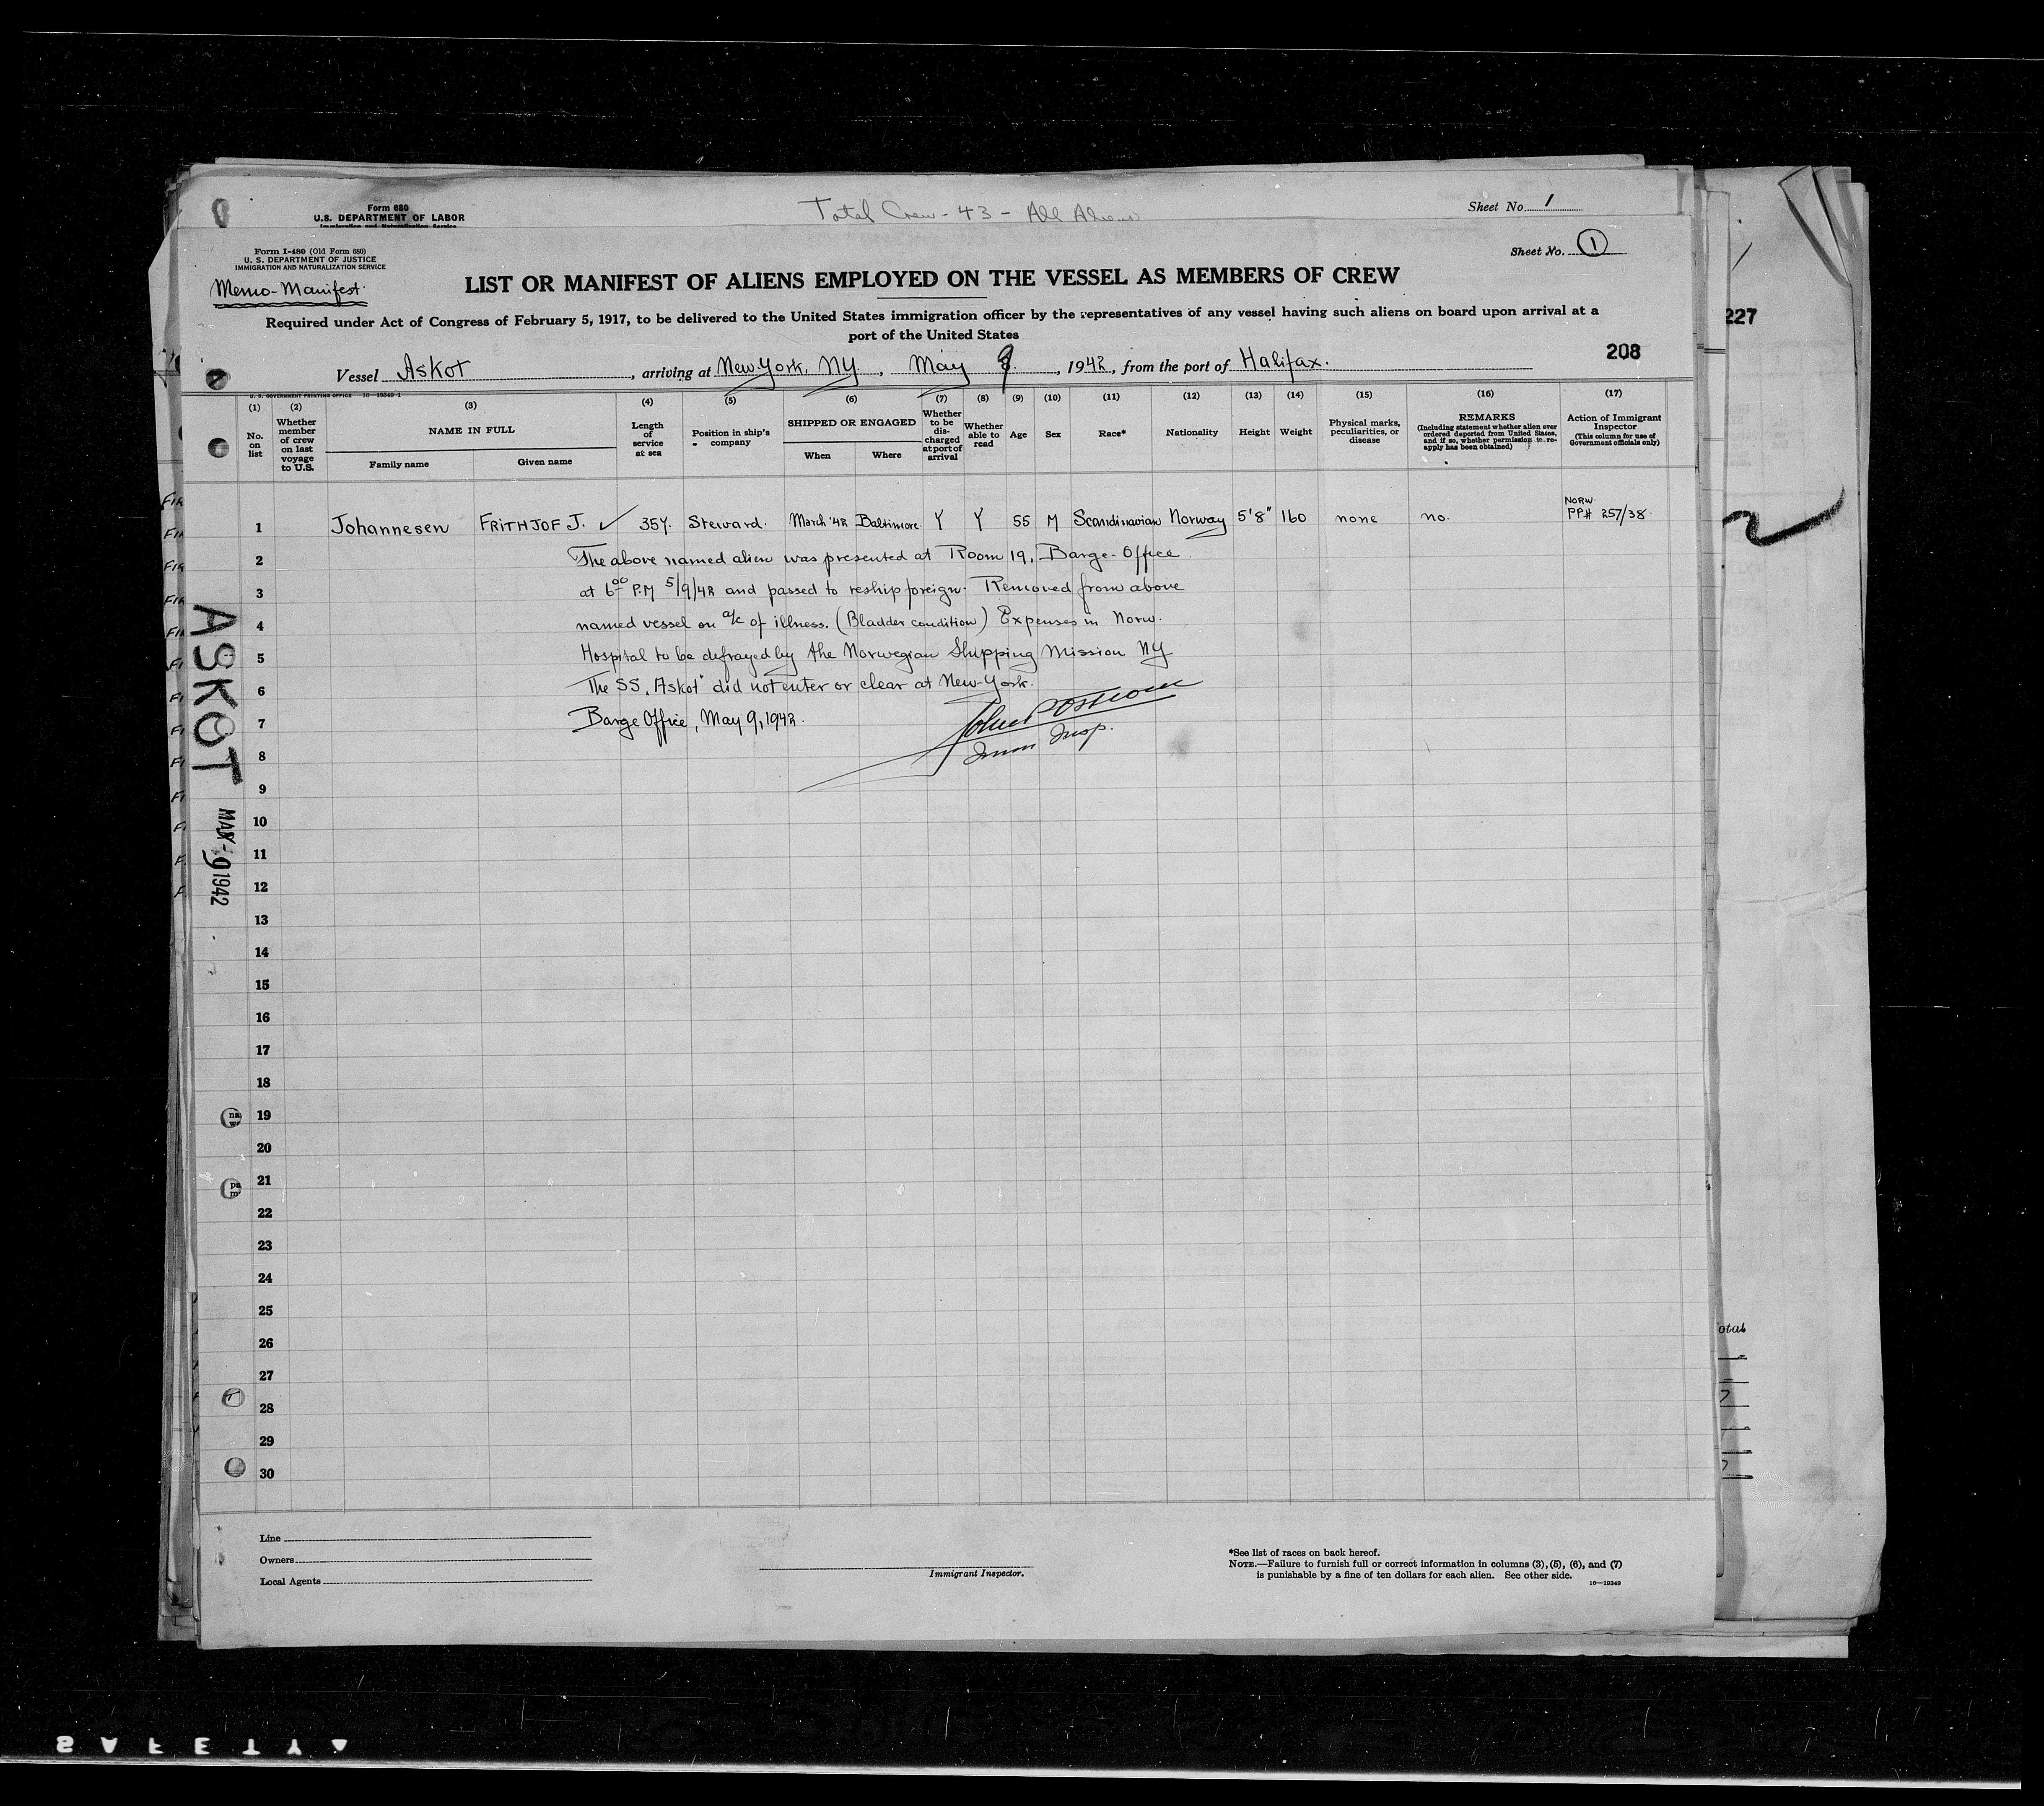 Form 680
U.S. DEPARTMENT OF LABOR
Immigration and Naturalization Service
Total Crew - 43 - All Aliens
Sheet No. 1
Form I-480 (Old Form 680)
U. S. DEPARTMENT OF JUSTICE
IMMIGRATION AND NATURALIZATION SERVICE
Memo-Manifest.
Sheet No. 1
LIST OR MANIFEST OF ALIENS EMPLOYED ON THE VESSEL AS MEMBERS OF CREW
Required under Act of Congress of February 5, 1917, to be delivered to the United States immigration officer by the representatives of any vessel having such aliens on board upon arrival at a
port of the United States
227
208
Vessel Askot, arriving at New York, NY., May 9, 1942, from the port of Halifax.
U. S. GOVERNMENT PRINTING OFFICE 16-19349-1
(1) No. on list
(2) Whether member of crew on last voyage to U.S.
(3) NAME IN FULL
Family name Given name
(4) Length of service at sea
(5) Position in ship's company
(6) SHIPPED OR ENGAGED
When Where
(7) Whether to be discharged at port of arrival
(8) Whether able to read
(9) Age
(10) Sex
(11) Race*
(12) Nationality
(13) Height
(14) Weight
(15) Physical marks, peculiarities, or disease
(16) REMARKS
(Including statement whether alien ever ordered deported from United States, and if so, whether permission to re-apply has been obtained)
(17) Action of Immigrant Inspector
(This column for use of Government officials only)
NORW.
1 Johannesen FRITHJOF J. ✓ 35Y. Steward. March '42 Baltimore. Y Y 55 M Scandinavian Norway 5'8" 160 none no. PP# 257/38.
2 The above named alien was presented at Room 19, Barge-Office
3 at 6:00 P.M 5/9/42 and passed to reship foreign. Removed from above
4 named vessel on a/c of illness. (Bladder condition) Expenses in Norw.
5 Hospital to be defrayed by the Norwegian Shipping Mission NY
6 The SS. Askot" did not enter or clear at New-York.
7 Barge Office, May 9, 1942.
8 Imm Insp.
9
10
11
12
13
14
15
16
17
18
19
20
21
22
23
24
25
26
27
28
29
30
ASKOT
MAY - 9 1942
Line
Owners
Local Agents
Immigrant Inspector.
*See list of races on back hereof.
NOTE.—Failure to furnish full or correct information in columns (3), (5), (6), and (7)
is punishable by a fine of ten dollars for each alien. See other side.
16—19349
SAFETY